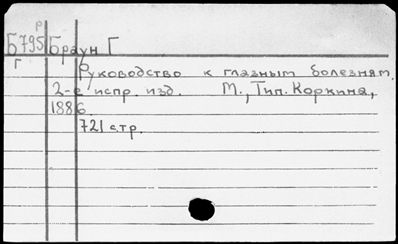 р
Б795 Браун Г
Г
Руководство к глазным болезням.
2-е испр. изд. М., Тип. Коркина,
1886.
721 стр.